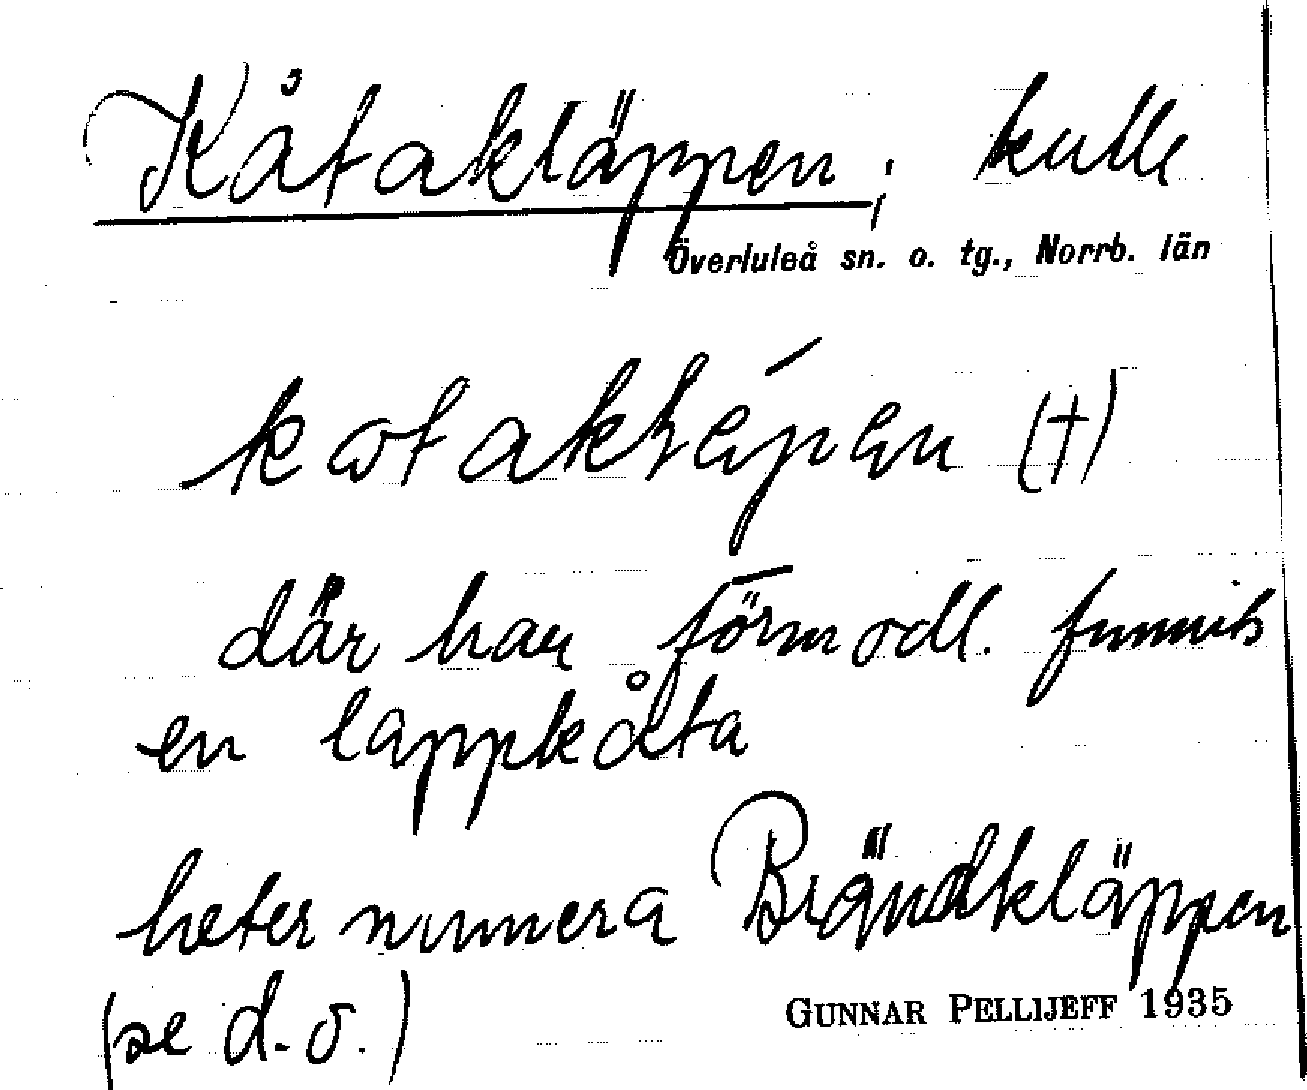 Kåtakläppen; kulle
Överluleå sn. o. tg., Norrb. län
(†)
där har förmodl. funnits
en lappkåta
heter numera Brändkläppen
(se d. o.)
GUNNAR PELLIJEFF 1935